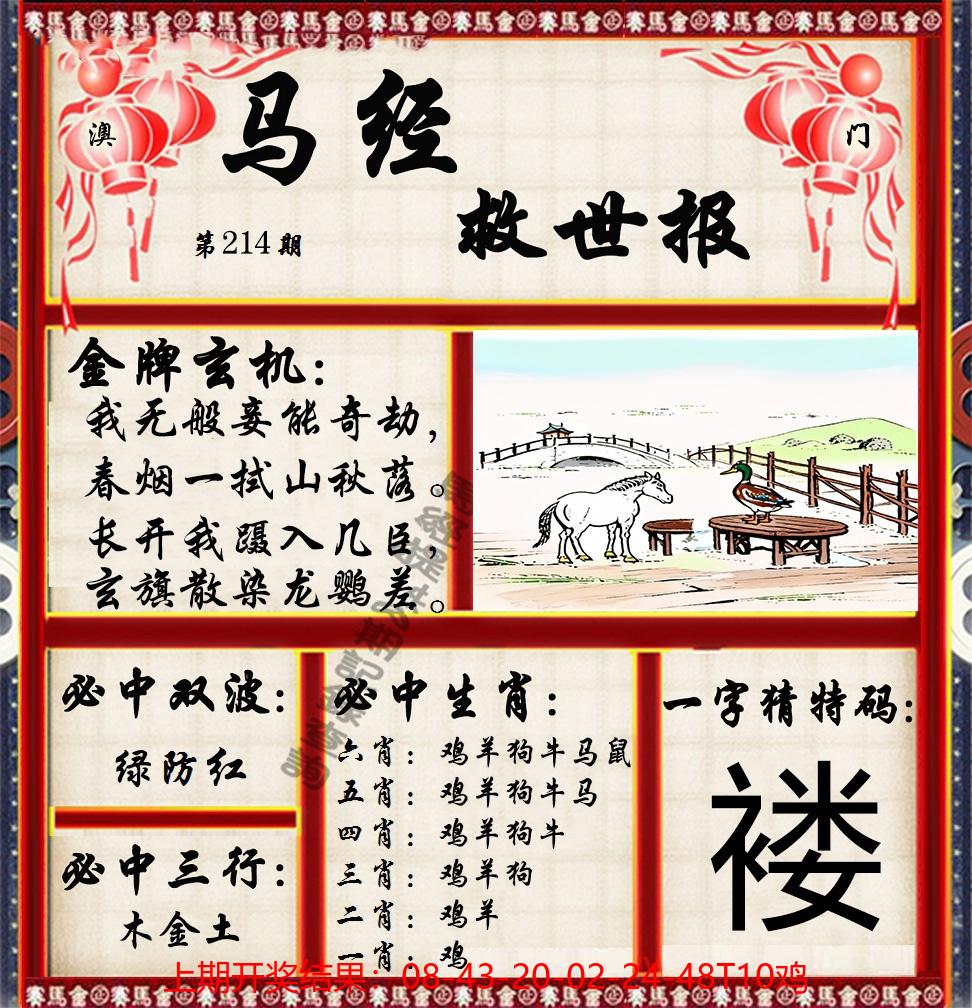 澳
门
马经
救世报
第214期
金牌玄机：
我无般妾能奇劫，
春烟一拭山秋落。
长开我蹑入几臣，
玄旗散染龙鹦差。
必中双波：
绿防红
必中三行：
木金土
必中生肖：
六肖：鸡羊狗牛马鼠
五肖：鸡羊狗牛马
四肖：鸡羊狗牛
三肖：鸡羊狗
二肖：鸡羊
一肖：鸡
一字猜特码：
褛
上期开奖结果：08-43-20-02-24-48T10鸡